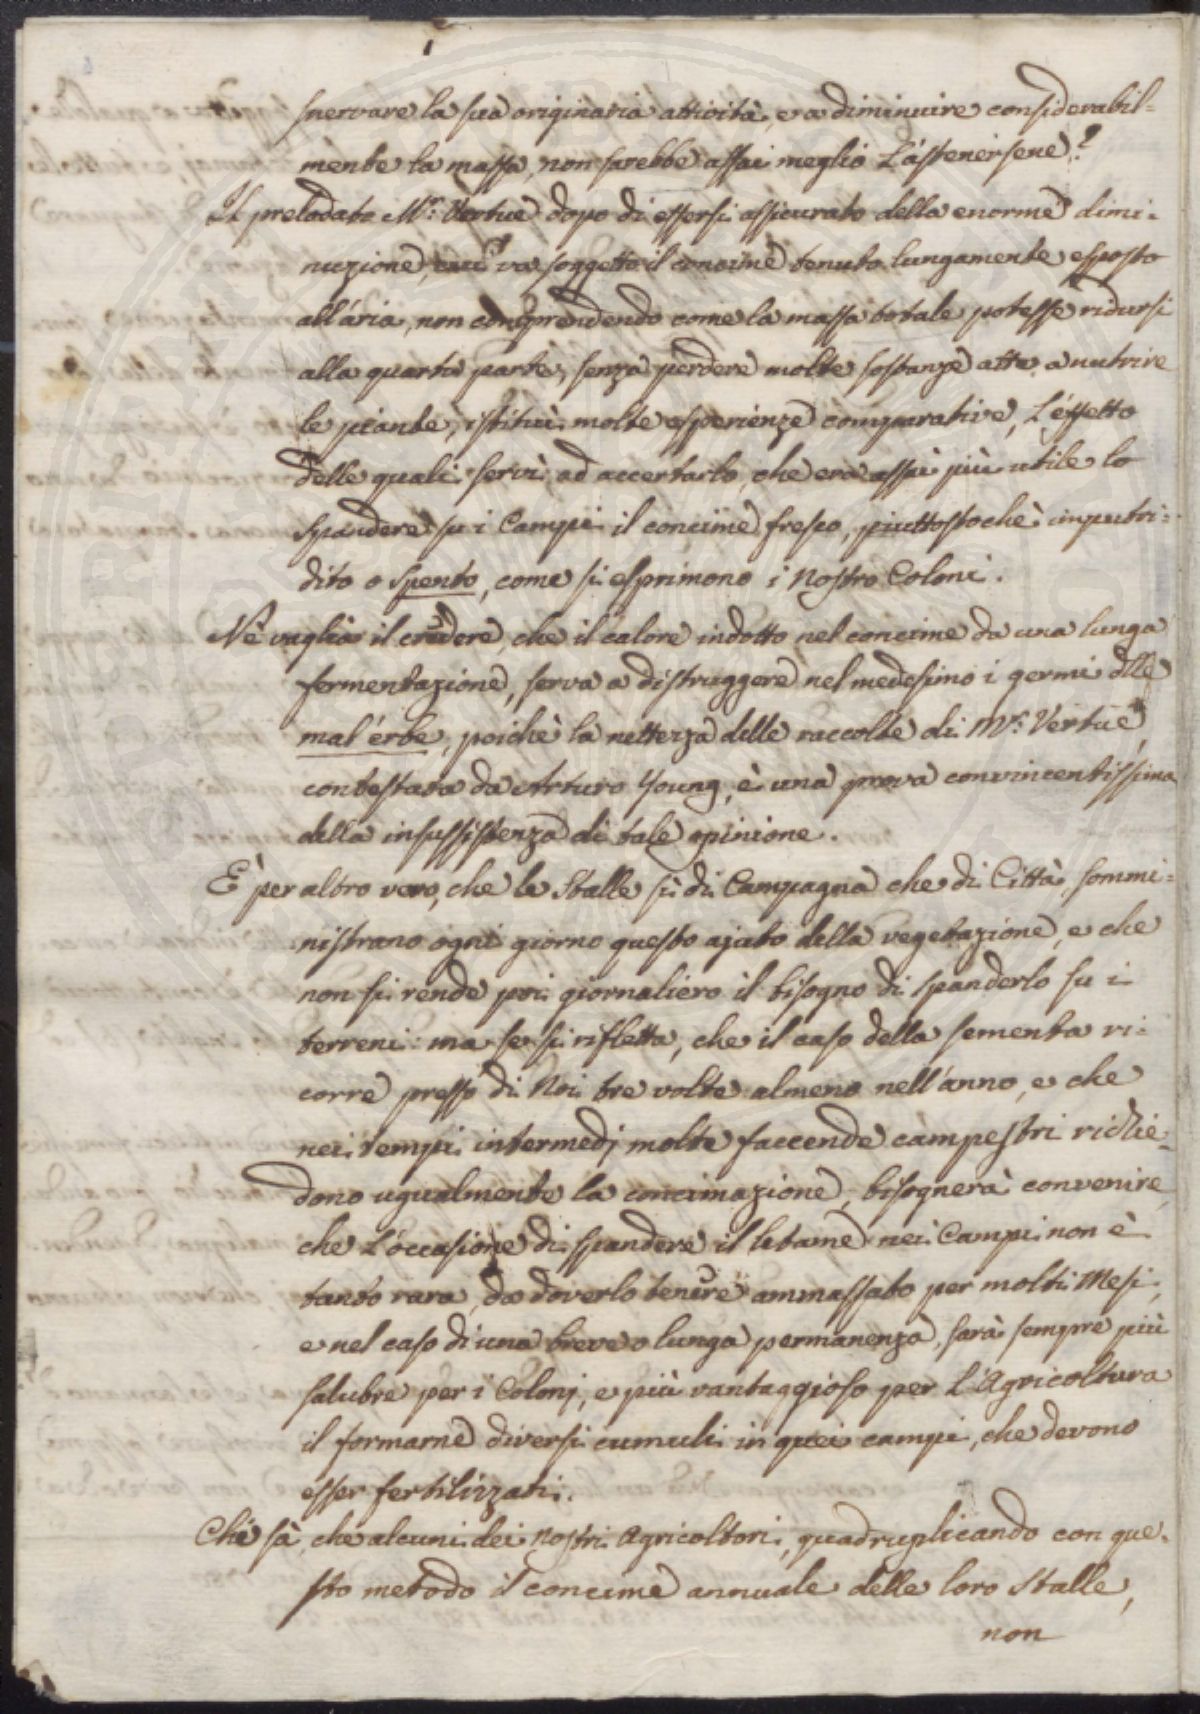 snervare la sua originaria attività, e a diminuire considerabil=
mente la massa, non sarebbe assai meglio L'astenersene?
Il prelodato Mr: Vertue dopo di essersi assicurato della enorme dimi=
nuzione, cui va soggetto il concime tenuto lungamente esposto
all'aria, non comprendendo come la massa totale potesse ridursi
alla quarta parte, senza perdere molte sostanze atte a nutrire
le piante, istituì molte esperienze comparative, L'effetto
delle quali servì ad accertarlo, che era assai più utile lo
spandere su i Campi il concime fresco, piuttostochè imputri=
dito o spento, come si esprimono i Nostro Coloni.
Nè vaglia il credere, che il calore indotto nel concime da una lunga
fermentazione, serva a distruggere nel medesimo i germi dlle
mal'erbe, poichè la nettezza delle raccolte di Mr: Vertue
contestata da Arturo Young, è una prova convincentissima
della insussistenza di tale opinione.
È per altro vero, che le Stalle sì di Campagna che di Città, sommi=
nistrano ogni giorno questo ajuto della vegetazione, e che
non si rende poi giornaliero il bisogno di spanderlo su i
terreni: ma se si rifletta, che il caso della sementa ri=
corre presso di Noi tre volte almeno nell'anno, e che
nei tempi intermedj molte faccende campestri richie=
dono ugualmente la concimazione, bisognerà convenire,
che L'occasione di spandere il letame nei Campi non è
tanto rara, da doverlo tenere ammassato per molti Mesi,
e nel caso di una breve o lunga permanenza, sarà sempre più
salubre per i Colonj, e più vantaggioso per L'Agricoltura
il formarne diversi cumuli in quei campi, che devono
esser fertilizzati.
Chi sà, che alcuni dei Nostri Agricoltori, quadruplicando con que=
sto metodo il concime annuale delle loro Stalle,
non